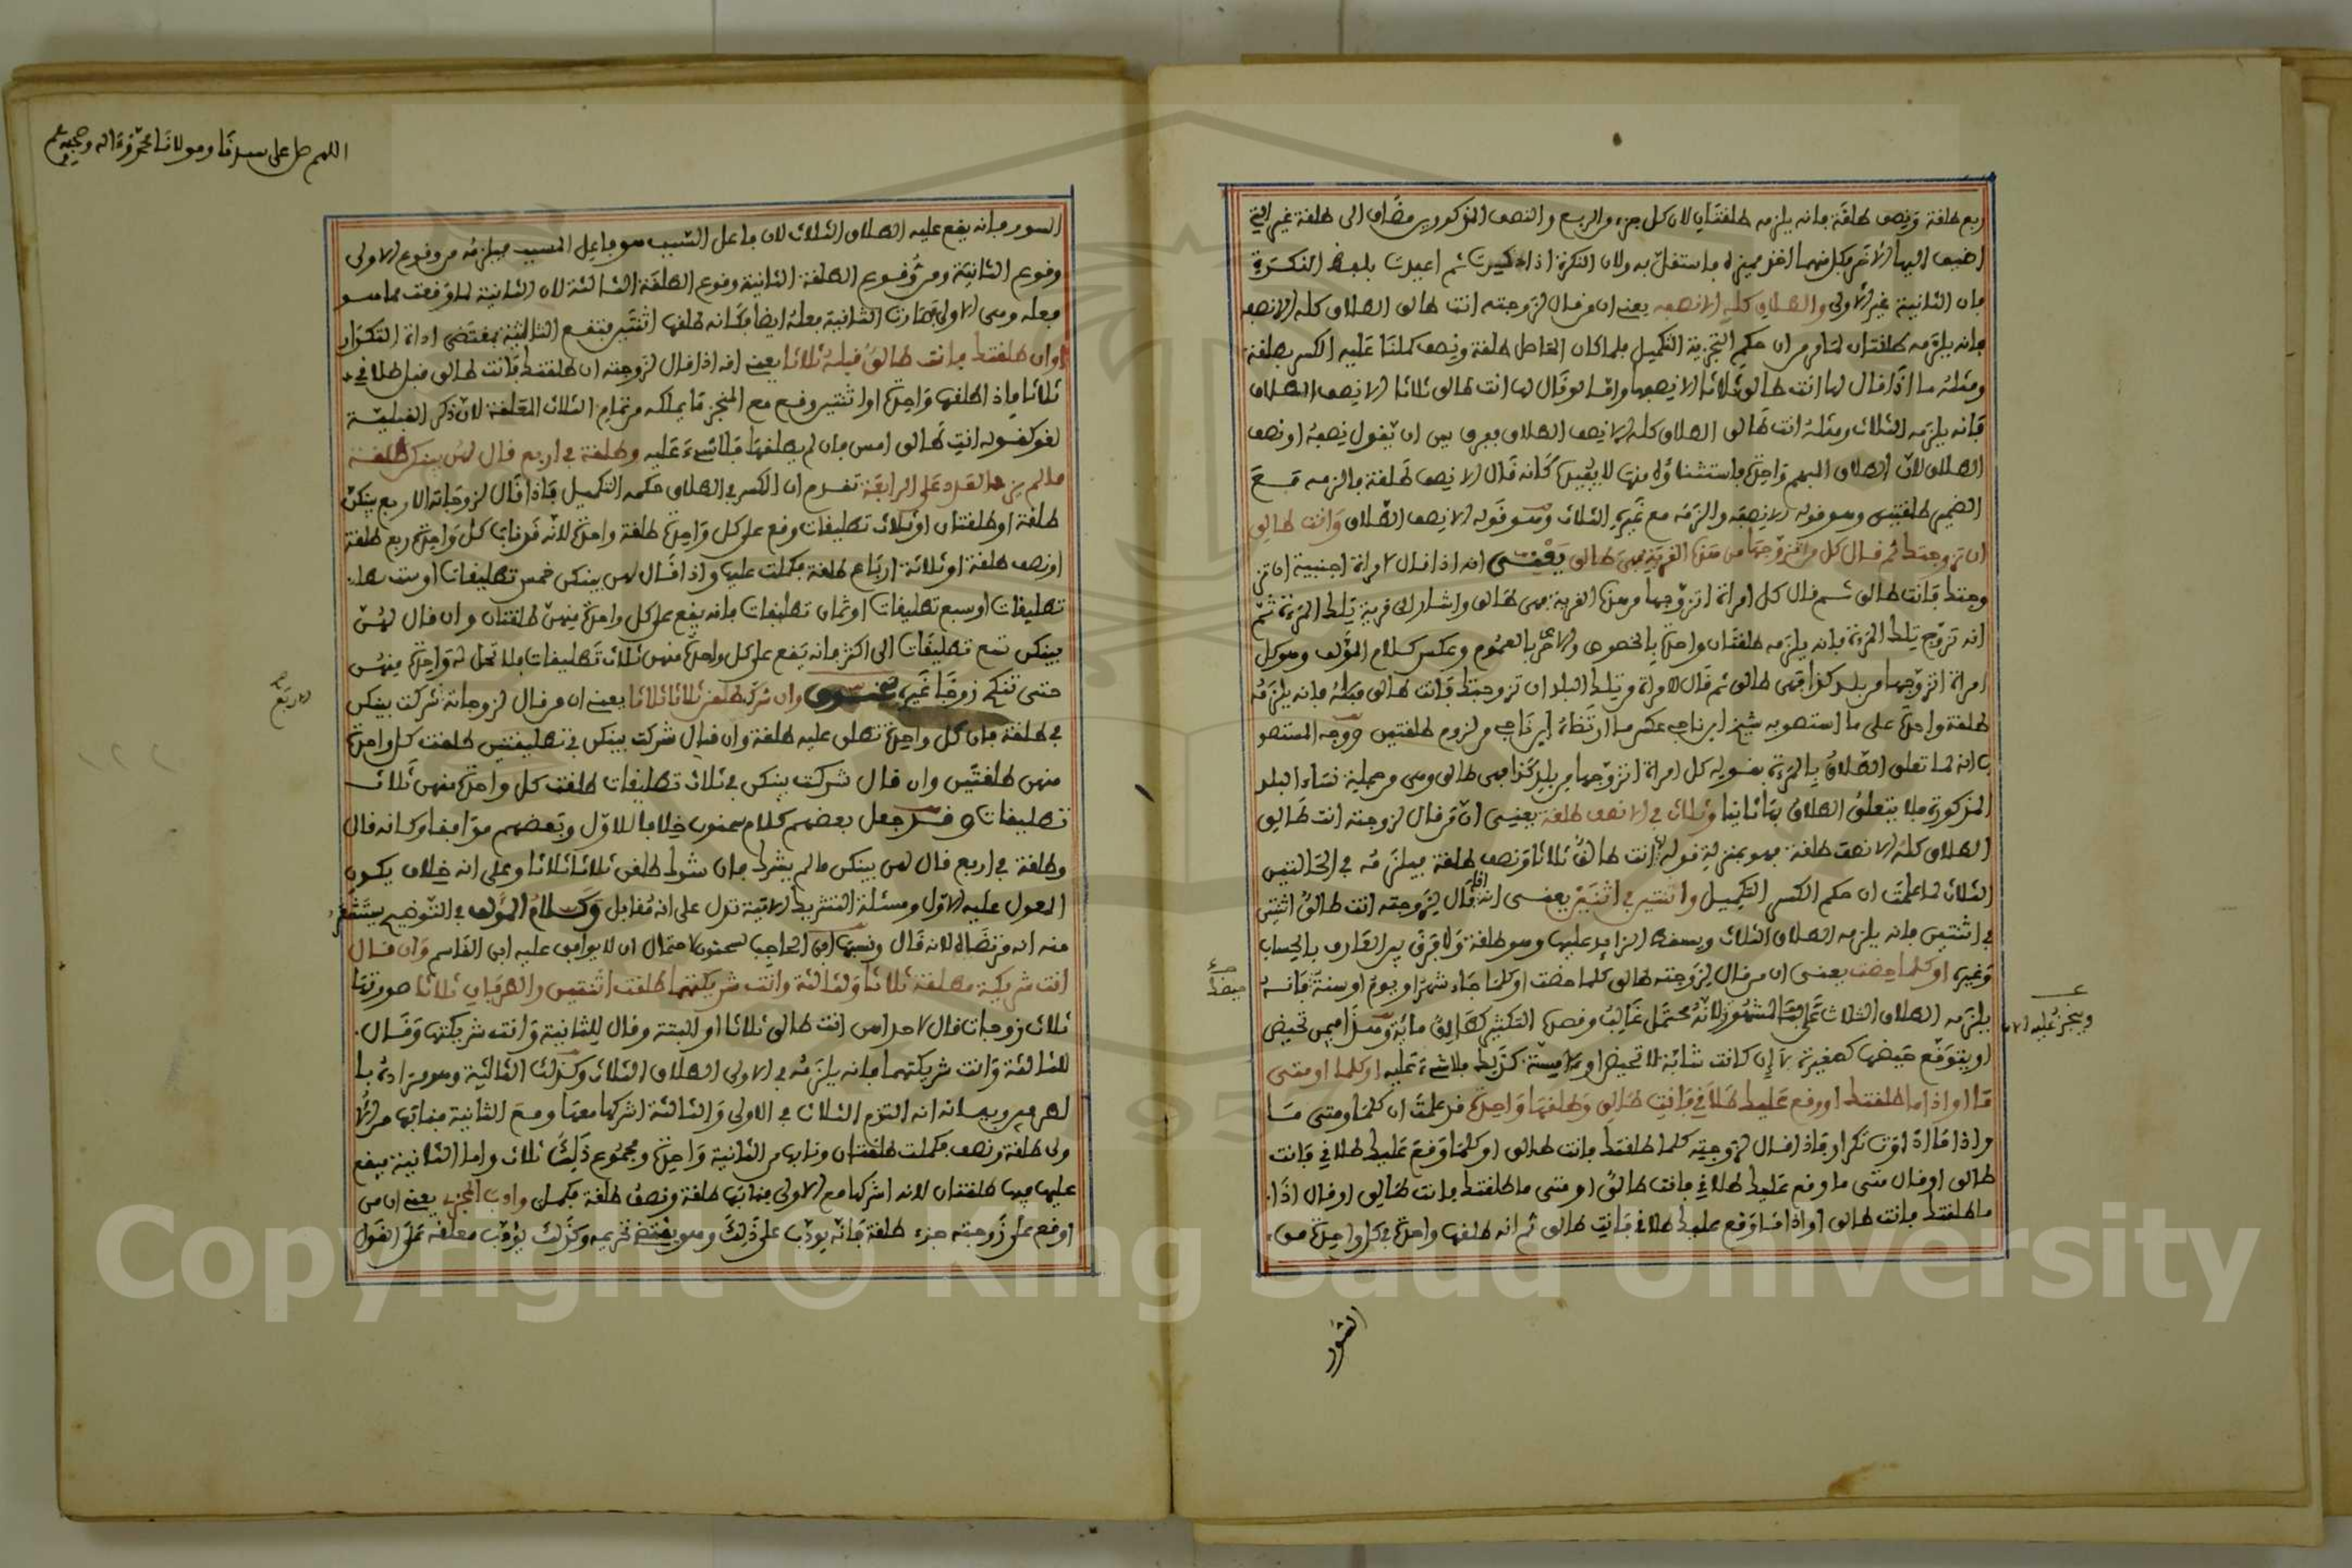 ربع طلقة ونصف طلقة فانه يلزمه طلقتان لان كل جزء والربع والنصف المذكورين مضاف الى طلقة غير التي
اضيف اليها الاخر فكل منهما اخذ مميزه فاستقل به ولان النكرة اذا ذكرت ثم اعيدت بلفظ النكرة
فان الثانية غير الاولى والطلاق كله الا نصفه يعني ان من قال لزوجته انت طالق الطلاق كله الا نصفه
فانه يلزمه طلقتان لما مر من ان حكم التجزية التكميل فلما كان الفاضل طلقة ونصف كملنا عليه الكسر بطلقة
ومثله ما اذا قال لها انت طالق ثلاثا الا نصفها واما لو قال لها انت طالق ثلاثا الا نصف الطلاق
فانه يلزمه الثلاث ومثله انت طالق الطلاق كله الا نصف الطلاق بفرق بين ان يقول نصفه او نصف
الطلاق لان الطلاق المبهم واحدة فاستثناؤه منها لا يفيد كانه قال الا نصف طلقة فالزمه مع
الضمير طلقتين وهو قوله الا نصفه والزمه مع غيره الثلاث وهو قوله الا نصف الطلاق وانت طالق
ان تزوجتك ثم قال كل من اتزوجها من هذه القرية فهي طالق يعني انه اذا قال لامراة اجنبية ان تز
وجتك فانت طالق ثم قال كل امراة اتزوجها من هذه القرية فهي طالق واشار الى قرية تلك المرءة ثم
انه تزوج تلك المرءة فانه يلزمه طلقتان واحدة بالخصوص والاخرى بالعموم وعكس كلام المؤلف وهو كل
امراة اتزوجها من بلد كذا فهي طالق ثم قال لامراة من تلك البلد ان تزوجتك فانت طالق فمثله فانه يلزمه
طلقة واحدة على ما استصوبه شيخ ابن ناجي عكس ما ارتضاه ابن ناجي من لزوم طلقتين ووجه المستصو
ب انه لما تعلق الطلاق بالمرءة بقوله كل امراة اتزوجها من بلد كذا فهي طالق وهي من جملة نساء البلد
المذكورة فلا يتعلق الطلاق بها ثانيا وثلاث في الا نصف طلقة يعني ان من قال لزوجته انت طالق
الطلاق كله الا نصف طلقة فهو بمنزلة قوله انت طالق ثلاثا ونصف طلقة فيلزمه في الحالتين
الثلاث لما علمت ان حكم الكسر التكميل واثنتين في اثنتين يعني انه اذا قال لزوجته انت طالق اثنتين
في اثنتين فانه يلزمه الطلاق الثلاث ويسقط الزايد عليها وهو طلقة ولا فرق بين العارف بالحساب
وغيره او كلما حضت يعني ان من قال لزوجته طالق كلما حضت او كلما جاء شهر او يوم او سنة فانه
يلزمه الطلاق الثلاث على المشهور لانه محتمل غالب وقصده التكثير كطالق مائة وهذا فيمن تحيض
او يتوقع حيضها كصغيرة لا ان كانت شابة لا تحيض او يايسة كذلك فلا شيء عليه او كلما او متى
ما او اذا ما طلقتك او وقع عليك طلاقي فانت طالق وطلقها واحدة قد علمت ان كلما ومتى ما
واذا ما اداوت تكرار فاذا قال لزوجته كلما طلقتك فانت طالق او كلما وقع عليك طلاقي فانت
طالق او قال متى ما وقع عليك طلاقي فانت طالق او متى ما طلقتك فانت طالق او قال اذا
ما طلقتك فانت طالق او اذا ما وقع عليك طلاقي فانت طالق ثم انه طلقها واحدة في كل واحدة من
الصور
اللهم صل على سيدنا ومولانا محمد واله وصحبه
الصور فانه يقع عليه الطلاق الثلاث لان فاعل السبب هو فاعل المسبب فيلزمه من وقوع الاولى
وقوع الثانية ومن وقوع الطلقة الثانية وقوع الطلقة الثالثة لان الثانية لما وقعت مما هو
فعله وهي الاولى صارت الثانية فعله ايضا فكانه طلقها اثنتين فتقع الثالثة بمقتضى اداة التكرار
او ان طلقتك فانت طالق قبله ثلاثا يعني انه اذا قال لزوجته ان طلقتك فانت طالق قبل طلاقي
ثلاثا فاذا طلقها واحدة او اثنتين وقع مع المنجز ما يملكه من تمام الثلاث المعلقة لان ذكر القبلية
لغو كقوله انت طالق امس فان لم يطلقها فلا شيء عليه وطلقة في اربع قال لهن بينكن طلقة
ما لم يزد العدد على الرابعة تقدم ان الكسر في الطلاق حكمه التكميل فاذا قال لزوجاته الاربع بينكن
طلقة او طلقتان او ثلاث تطليقات وقع على كل واحدة طلقة واحدة لانه قد ناب كل واحدة ربع طلقة
او نصف طلقة او ثلاثة ارباع طلقة فكملت عليها واذا قال لهن بينكن خمس تطليقات او ست
تطليقات او سبع تطليقات او ثمان تطليقات فانه يقع على كل واحدة منهن طلقتان وان قال لهن
بينكن تسع تطليقات الى اكثر فانه يقع على كل واحدة منهن ثلاث تطليقات فلا تحل له واحدة منهن
حتى تنكح زوجا غيره وان شرك طلقن ثلاثا ثلاثا يعني ان من قال لزوجاته شركت بينكن
في طلقة فان كل واحدة تطلق عليه طلقة وان قال شركت بينكن في تطليقتين طلقت كل واحدة
منهن طلقتين وان قال شركت بينكن في ثلاث تطليقات طلقت كل واحدة منهن ثلاث
تطليقات وقد جعل بعضهم كلام سحنون خلافا للاول وبعضهم موافقا وكانه قال
وطلقة في اربع قال لهن بينكن ما لم يشرك فان شرك طلقن ثلاثا ثلاثا وعلى انه خلاف يكون
المعول عليه الاول ومسئلة التشريك الاتية تدل على انه مقابل وكلام المؤلف في التوضيح يستشعر
منه انه من تضاه لانه قال ونسبها ابن الحاجب لسحنون لاحتمال ان لا يوافق عليه ابن القاسم وان قال
انت شريكة مطلقة ثلاثا ولثالثة وانت شريكتهما طلقت اثنتين والطرفان ثلاثا صورتها
ثلاث زوجات قال لاحداهن انت طالق ثلاثا او البتة وقال للثانية وانت شريكتها وقال
للثالثة وانت شريكتهما فانه يلزمه في الاولى الطلاق الثلاث وكذلك الثالثة وهو مراده با
لطرفين وبيانه انه التزم الثلاث في الاولى والثالثة اشركها معها ومع الثانية فنابها من الا
ولى طلقة ونصف فكملت طلقتان ونابها من الثانية واحدة ومجموع ذلك ثلاث واما الثانية فيقع
عليه فيها طلقتان لانه اشركها مع الاولى فنابها طلقة ونصف طلقة فكمل وادب المجزي يعني ان من
اوقع على زوجته جزء طلقة فانه يودب على ذلك وهو يقتضي تحريمه وكذلك يؤدب معلقه على القول